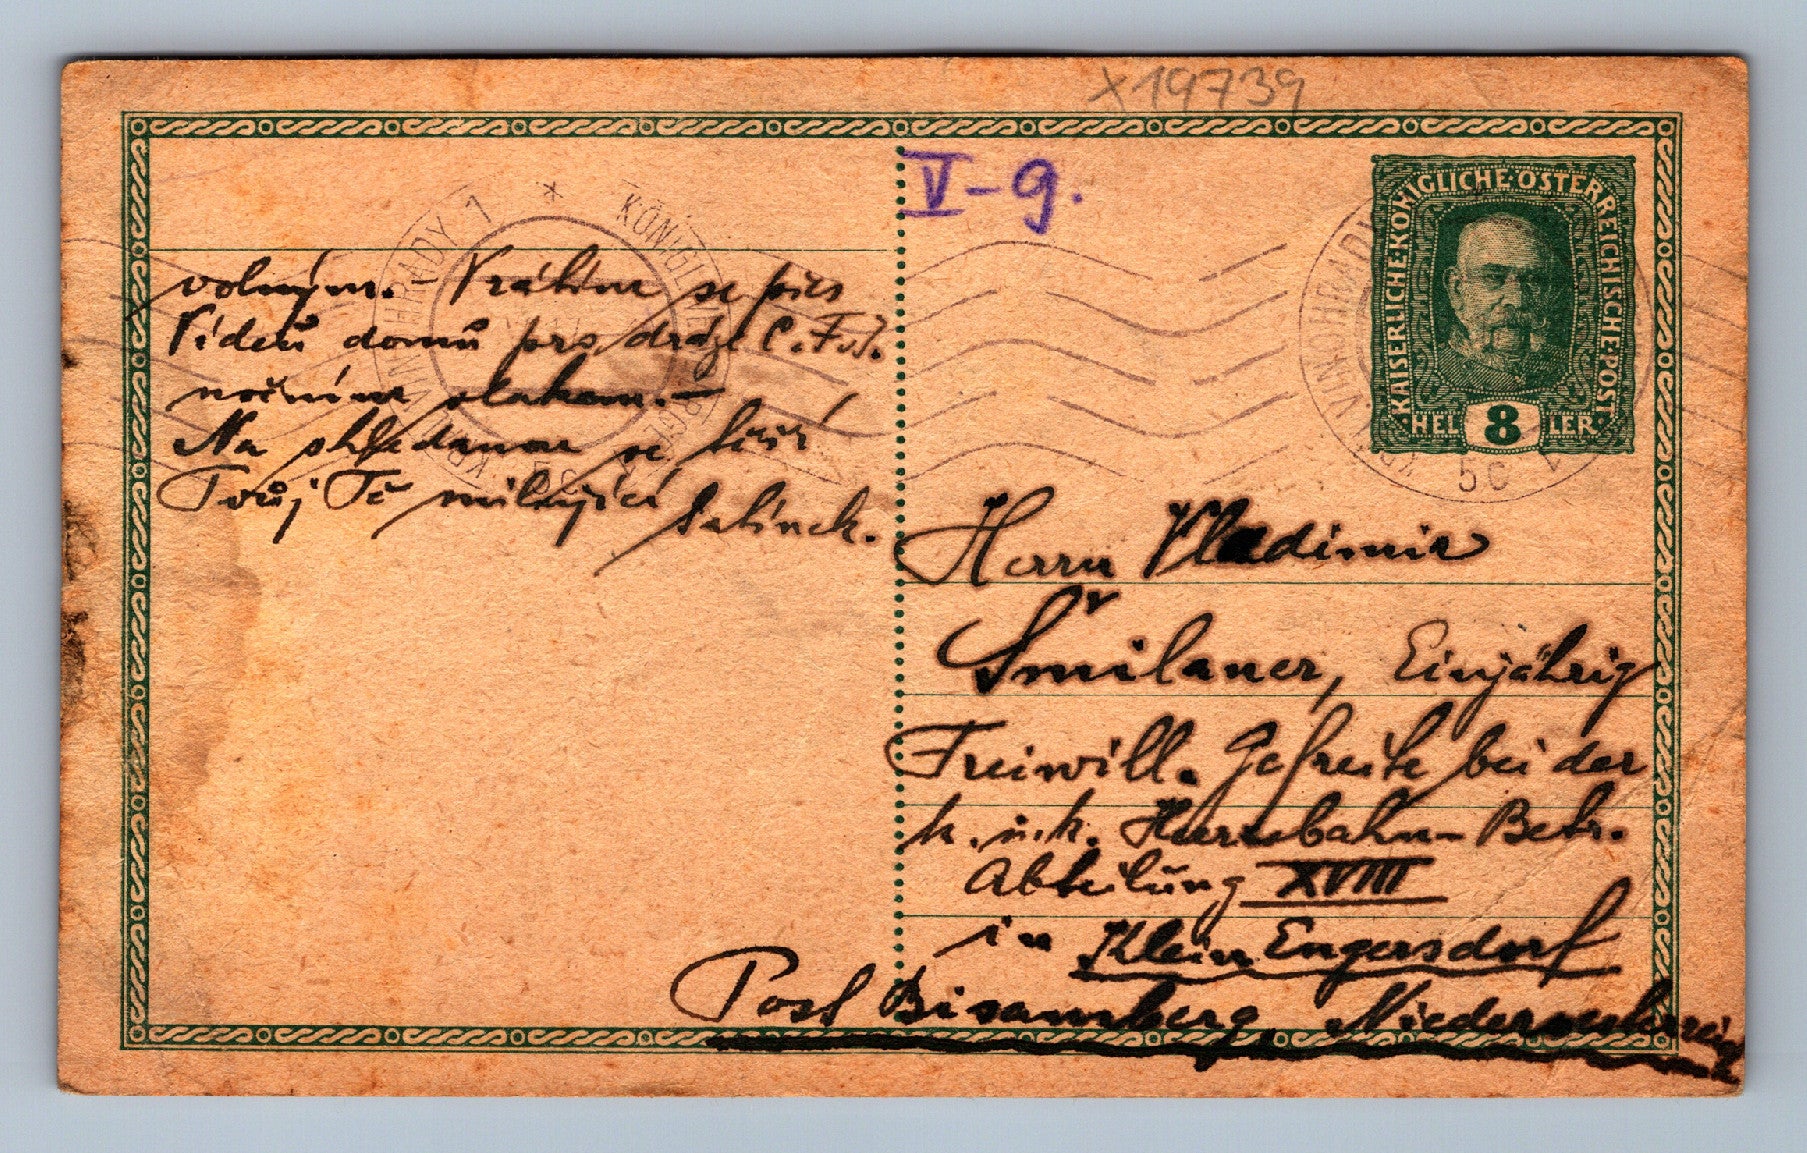 x19739
V-9.
KAISERLICHE·KÖNIGLICHE·ÖSTERREICHISCHE·POST
HEL 8 LER
VINOHRADY 1 * KÖNIGL.
VINOHRADY
5c
volným. - Vrátím se přes
Vídeň domů pro dráze C. F. J.
nočním vlakem. -
Na shledanou se těší
Tvůj Tě milující tatínek.
Herrn Vladimir
Šmilauer, Einjährig
Freiwill. Gefreite bei der
k. u. k. Heeresbahn- Betr.
Abteilung XVIII
in Klein Engersdorf
Post Bisamberg, Niederoesterreich